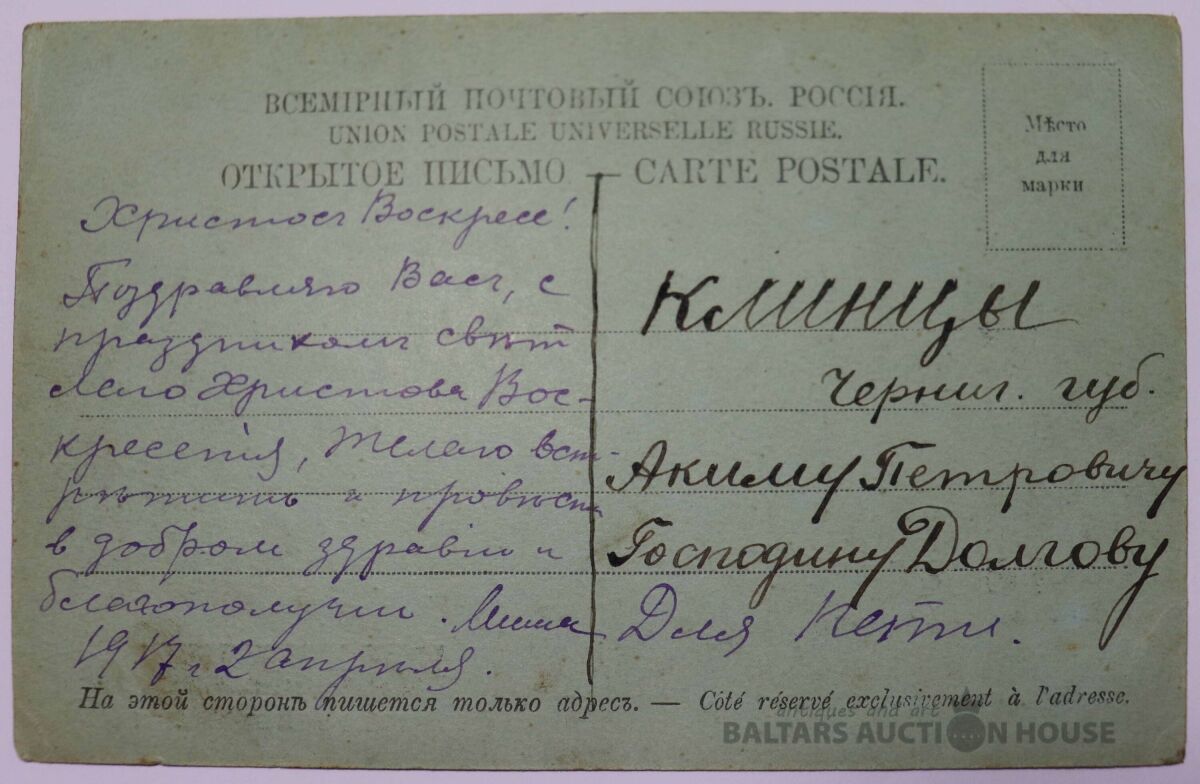 ВСЕМІРНЫЙ ПОЧТОВЫЙ СОЮЗЪ. РОССІЯ.
UNION POSTALE UNIVERSELLE RUSSIE.
ОТКРЫТОЕ ПИСЬМО — CARTE POSTALE.
Мѣсто
для
марки
Христосъ Воскресе!
Поздравляю Васъ, с
праздникомъ свѣт
лаго Христова Вос-
кресенія, Желаю вст-
рѣтить и провѣсти
в добром здравіи и
благополучии. Миша
1917 г 2 апреля.
Клинцы
Черниг. губ.
Акиму Петровичу
Господину Долгову
Для Пети.
На этой сторонѣ пишется только адресъ. — Côté réservé exclusivement à l'adresse.
antiques and art
BALTARS AUCTION HOUSE